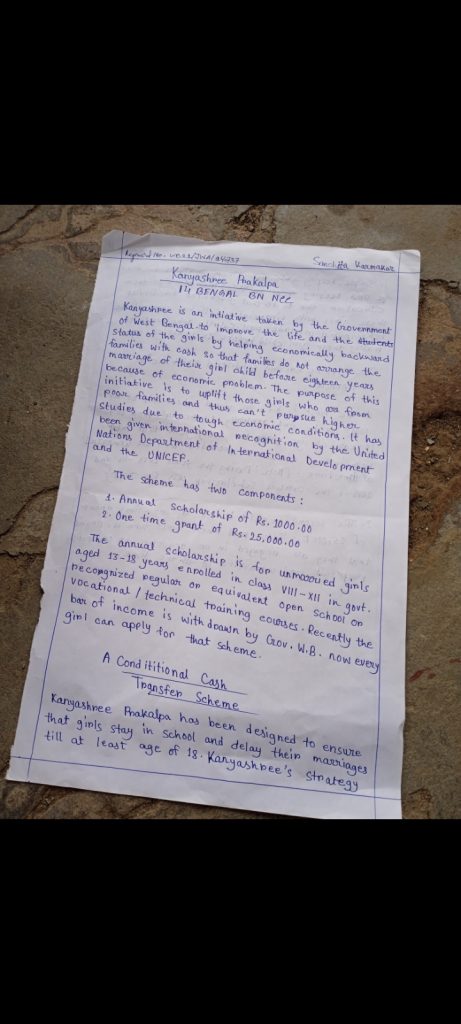 Sanchita Karmakar
Kanyashree Prakalpa
14 BENGAL BN NCC
Kanyashree is an intiative taken by the Government
of West Bengal to improve the life and the students
status of the girls by helping economically backward
families with cash so that families do not arrange the
marriage of their girl child before eighteen years
because of economic problem. The purpose of this
initiative is to uplift those girls who are from
poor families and thus can't purpsue higher
studies due to tough economic conditions. It has
been given international recognition by the United
Nations Department of International Development
and the UNICEF.
The scheme has two components :
1. Annual scholarship of Rs. 1000.00
2. One time grant of Rs. 25,000.00
The annual scholarship is for unmarried girls
aged 13-18 years enrolled in class VIII-XII in govt.
recongnized regular or equivalent open school or
vocational / technical training courses. Recently the
bar of income is withdrawn by Gov. W.B. now every
girl can apply for that scheme.
A Condititional Cash
Transfer Scheme
Kanyashree Prakalpa has been designed to ensure
that girls stay in school and delay their marriages
till at least age of 18. Kanyashree's strategy